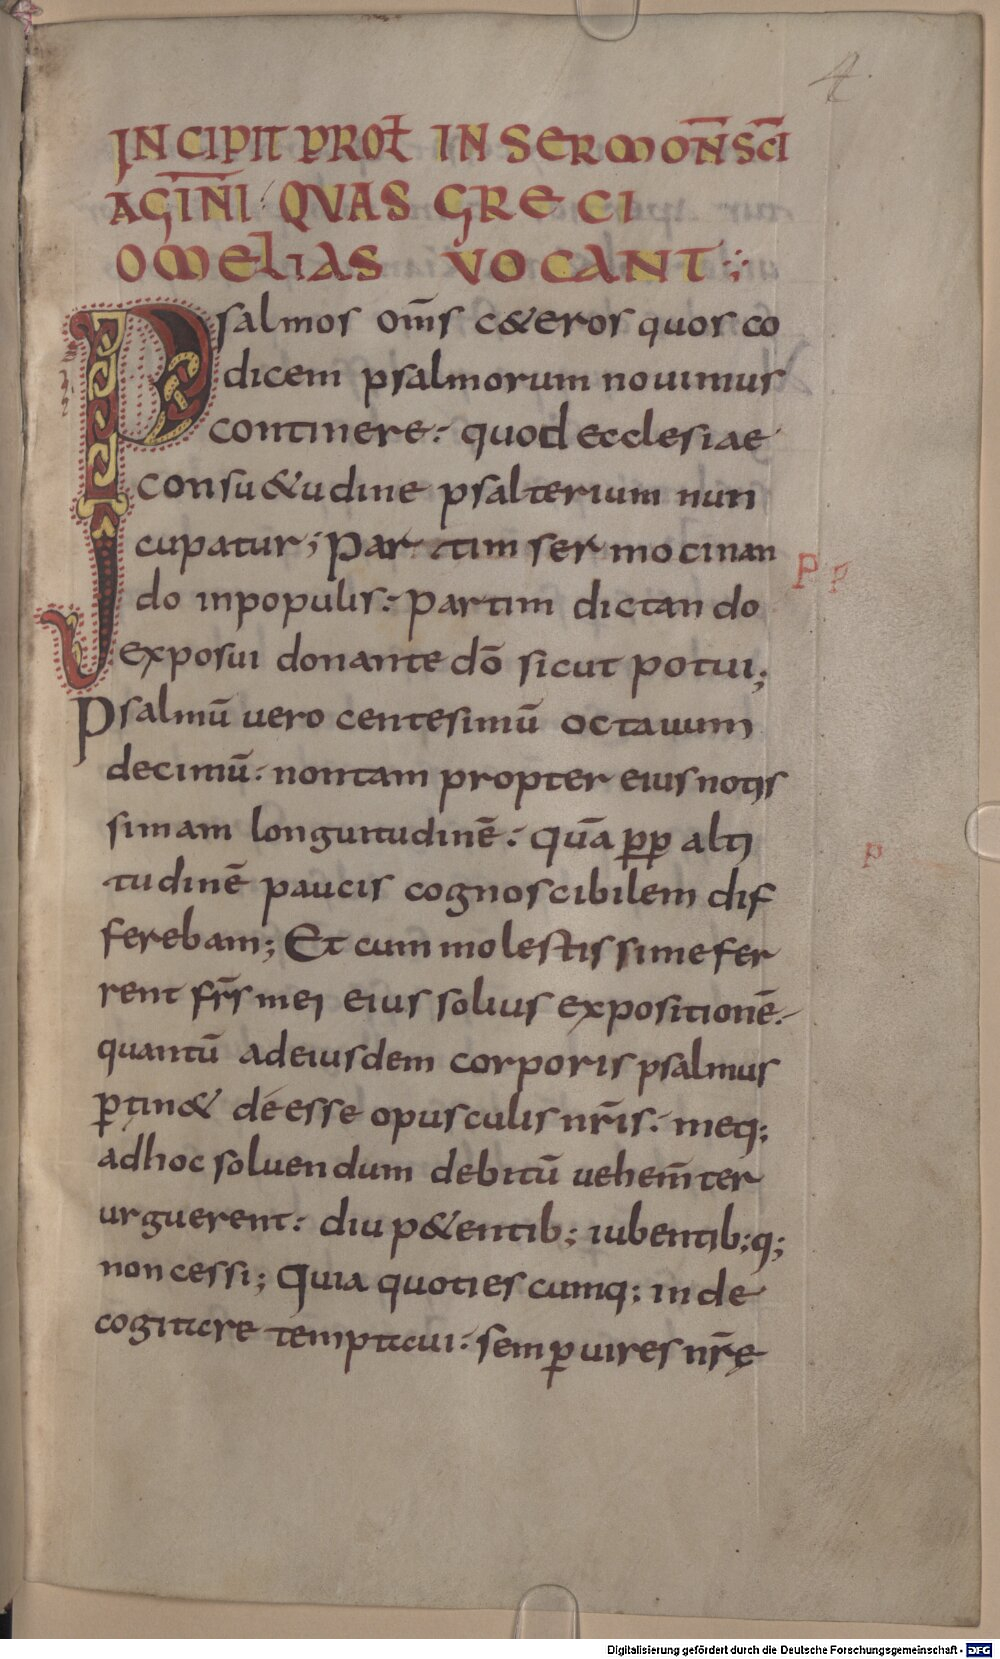 4.
INCIPIT PROŁ IN SERMON̄ SC̄I
AGIN̄I QVAS GRECI
OMELIAS VOCANT
Psalmos om̄s c&eros quos co
dicem psalmorum nouimus
continere: quod ecclesiae
consu&udine psalterium nun
cupatur; Partim sermocinan
do inpopulis: partim dictando
exposui donante dō sicut potui;
Psalmū uero centesimū octauum
decimū: nontam propter eius notis
simam longuitudinē: quā pp alti
tudinē paucis cognoscibilem dif
ferebam; Et cum molestissime fer
rent fr̄s mei eius solius expositionē:
quantū adeiusdem corporis psalmus
ꝑtin& deesse opusculis nr̄is: meq;
adhoc soluendum debitū uehem̄ter
urguerent: diu p&entib; iubentib;q;
non cessi; Quia quotiescumq; inde
cogitare temptaui: semꝑ uires nr̄ę
P p
p
Digitalisierung gefördert durch die Deutsche Forschungsgemeinschaft - DFG